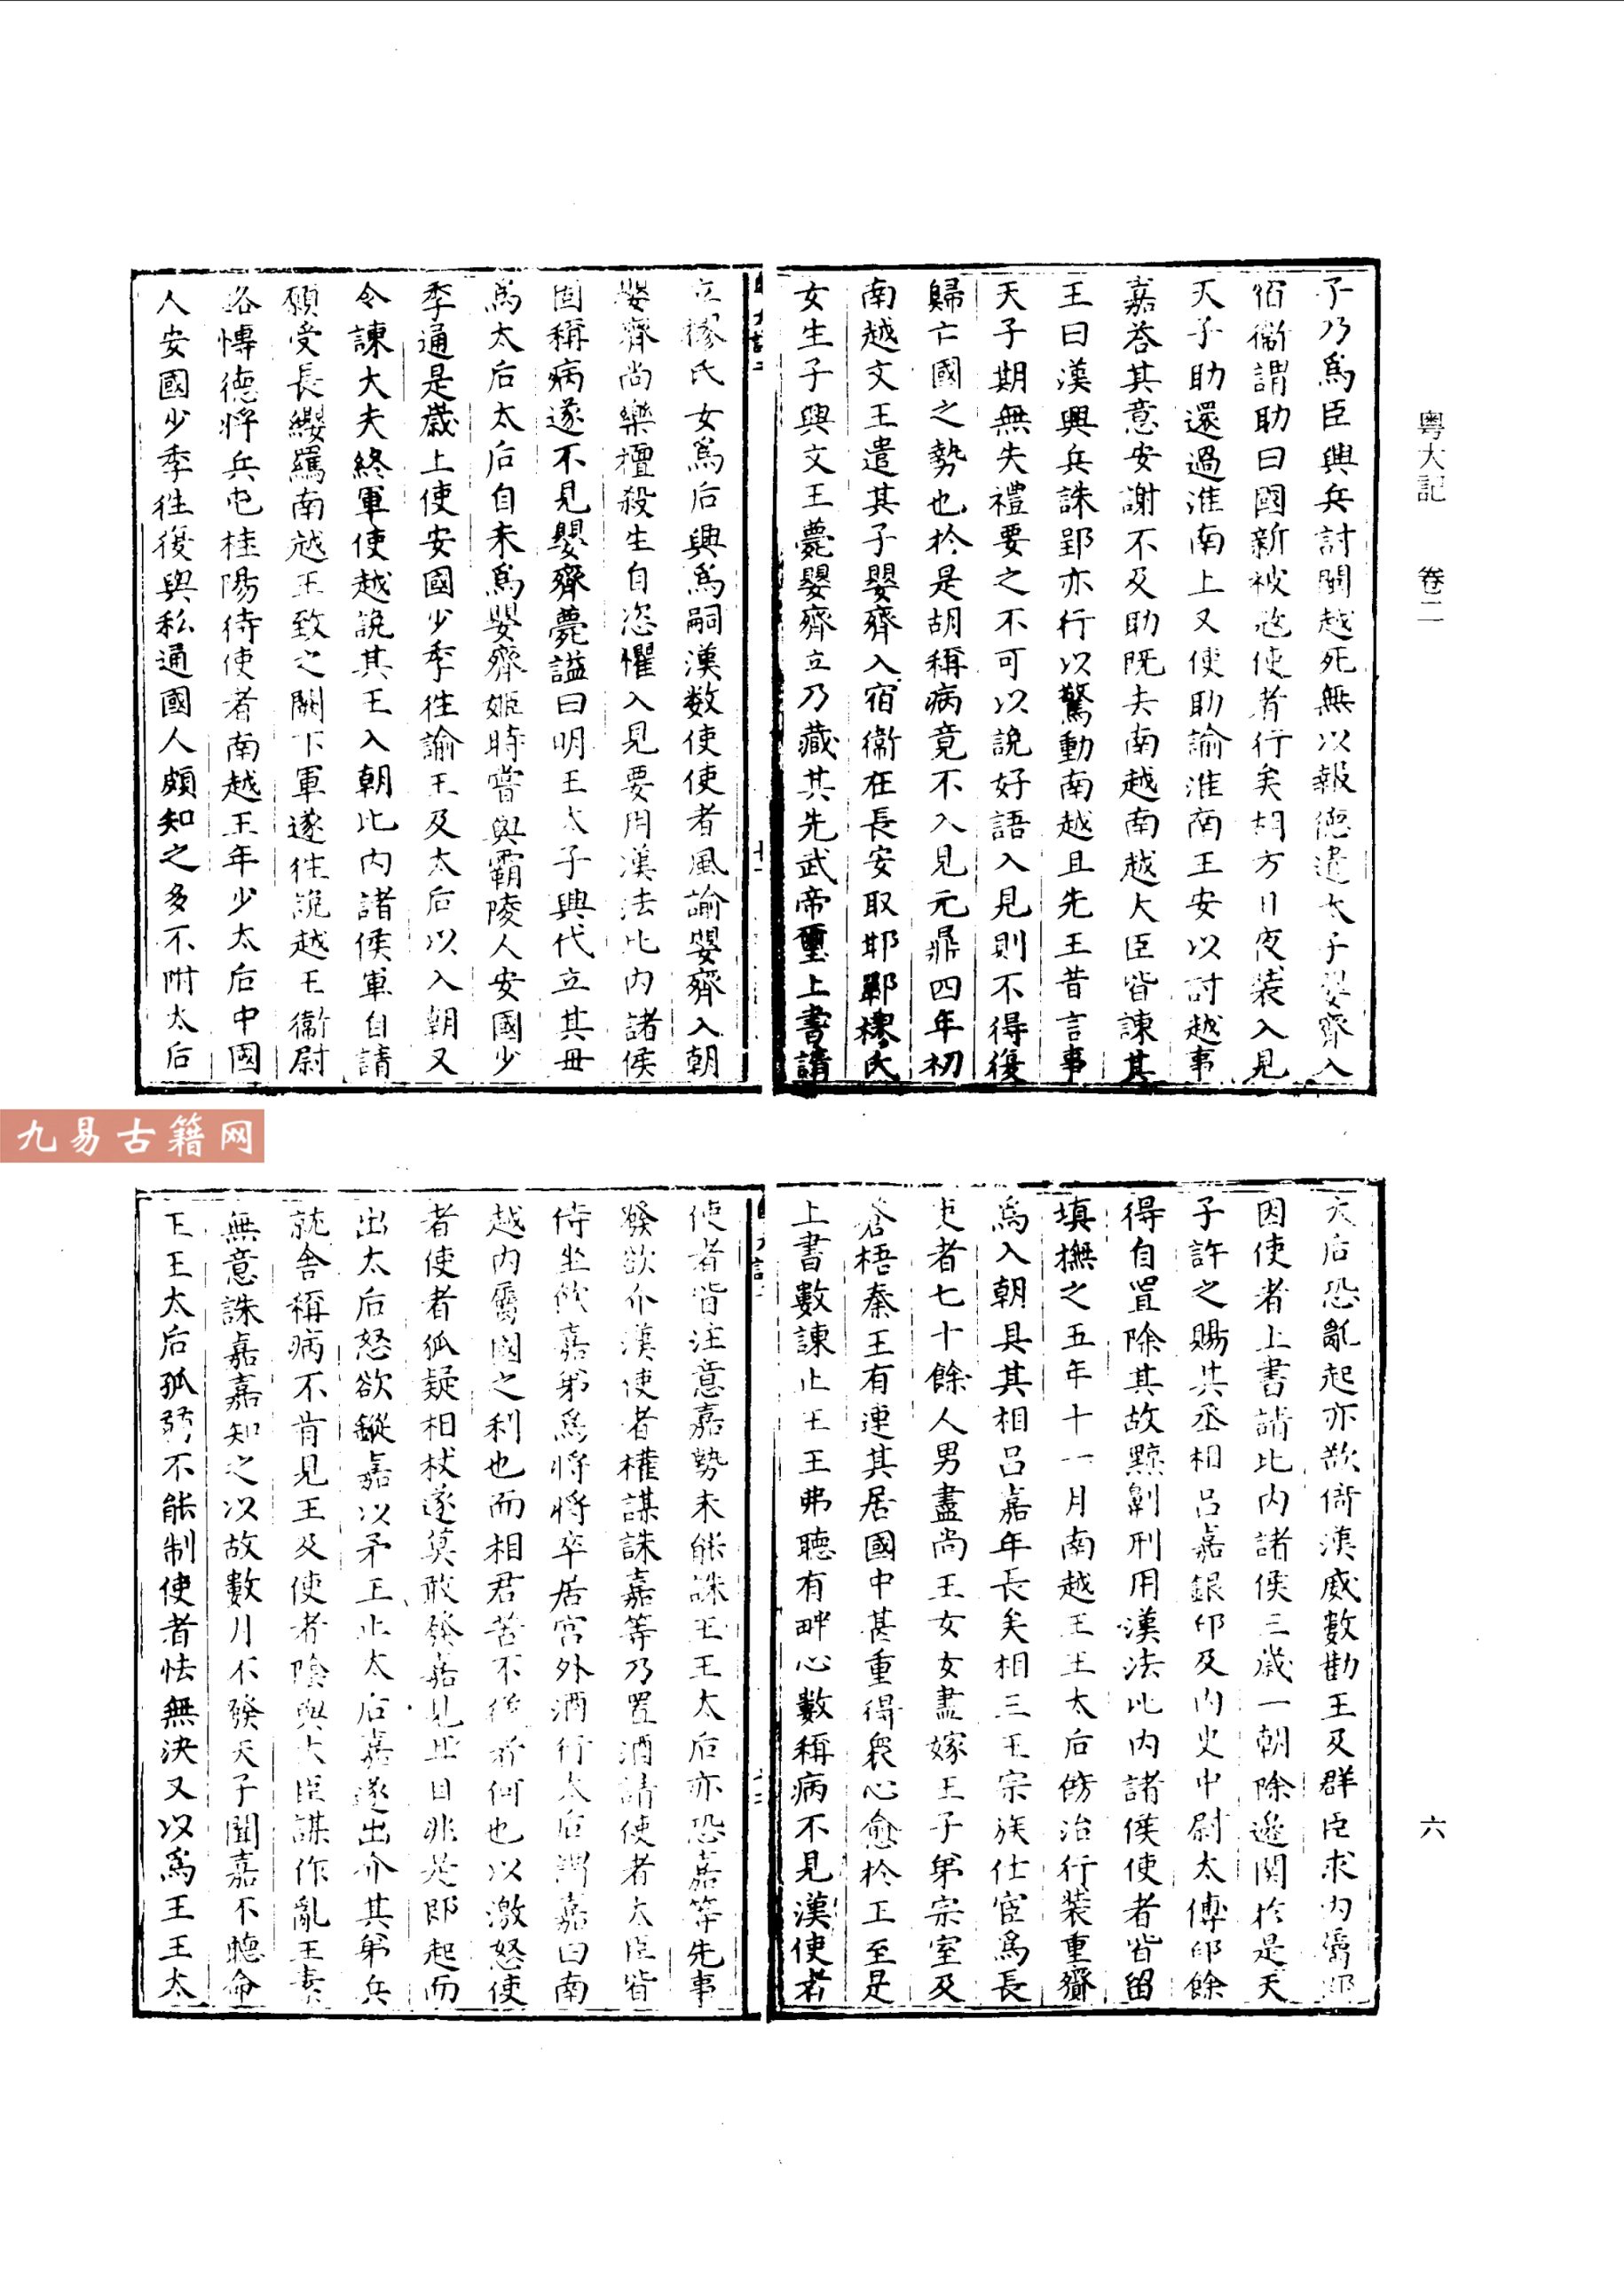 粵大記 卷二
子乃爲臣興兵討閩越死無以報德遣太子嬰齊入
宿衞謂助曰國新被寇使者行矣胡方日夜裝入見
天子助還過淮南上又使助諭淮南王安以討越事
嘉荅其意安謝不及助旣去南越南越大臣皆諫其
王曰漢興兵誅郢亦行以驚動南越且先王昔言事
天子期無失禮要之不可以說好語入見則不得復
歸亡國之勢也於是胡稱病竟不入見元鼎四年初
南越文王遣其子嬰齊入宿衞在長安取邯鄲樛氏
女生子興文王薨嬰齊立乃藏其先武帝璽上書請
立樛氏女爲后興爲嗣漢数使使者風諭嬰齊入朝
嬰齊尚樂擅殺生自恣懼入見要用漢法比內諸侯
固稱病遂不見嬰齊薨謚曰明王太子興代立其毋
爲太后太后自未爲嬰齊姬時嘗與霸陵人安國少
季通是歲上使安國少季往諭王及太后以入朝又
令諫大夫終軍使越說其王入朝比內諸侯軍自請
願受長纓羈南越王致之闕下軍遂往說越王衞尉
路慱德將兵屯桂陽待使者南越王年少太后中國
人安國少季往復與私通國人頗知之多不附太后
太后恐亂起亦欲倚漢威數勸王及群臣求內屬卽
因使者上書請比內諸侯三歲一朝除邊関於是天
子許之賜其丞相呂嘉銀印及內史中尉太傅印餘
得自置除其故黥劓刑用漢法比內諸侯使者皆留
填撫之五年十一月南越王王太后飭治行裝重齎
爲入朝具其相呂嘉年長矣相三王宗族仕宦爲長
吏者七十餘人男盡尚王女女盡嫁王子弟宗室及
蒼梧秦王有連其居國中甚重得衆心愈於王至是
上書數諫止王王弗聽有畔心數稱病不見漢使者
使者皆注意嘉勢未能誅王王太后亦恐嘉等先事
發欲介漢使者權謀誅嘉等乃置酒請使者大臣皆
侍坐飮嘉弟爲將將卒居宮外酒行太后謂嘉曰南
越內屬國之利也而相君苦不便者何也以激怒使
者使者狐疑相杖遂莫敢發嘉見耳目非是卽起而
出太后怒欲鏦嘉以矛王止太后嘉遂出介其弟兵
就舍稱病不肯見王及使者陰與大臣謀作亂王素
無意誅嘉嘉知之以故數月不發天子聞嘉不聽命
王王太后孤弱不能制使者怯無決又以爲王王太
六
九易古籍网